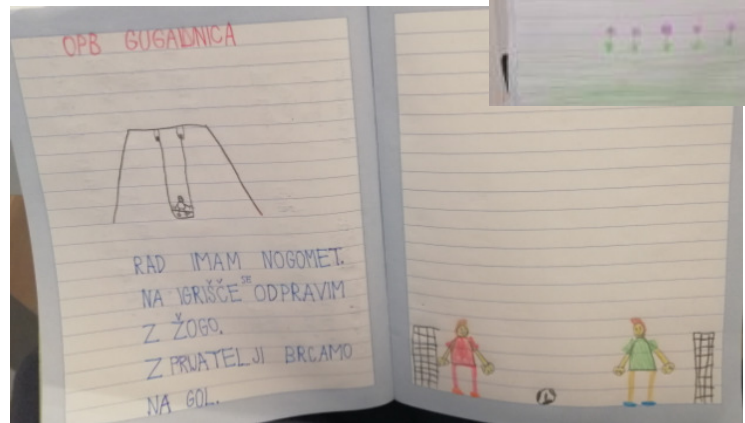 OPB GUGALNICA
RAD IMAM NOGOMET.
NA IGRIŠČE SE ODPRAVIM
Z ŽOGO.
Z PRIJATELJI BRCAMO
NA GOL.